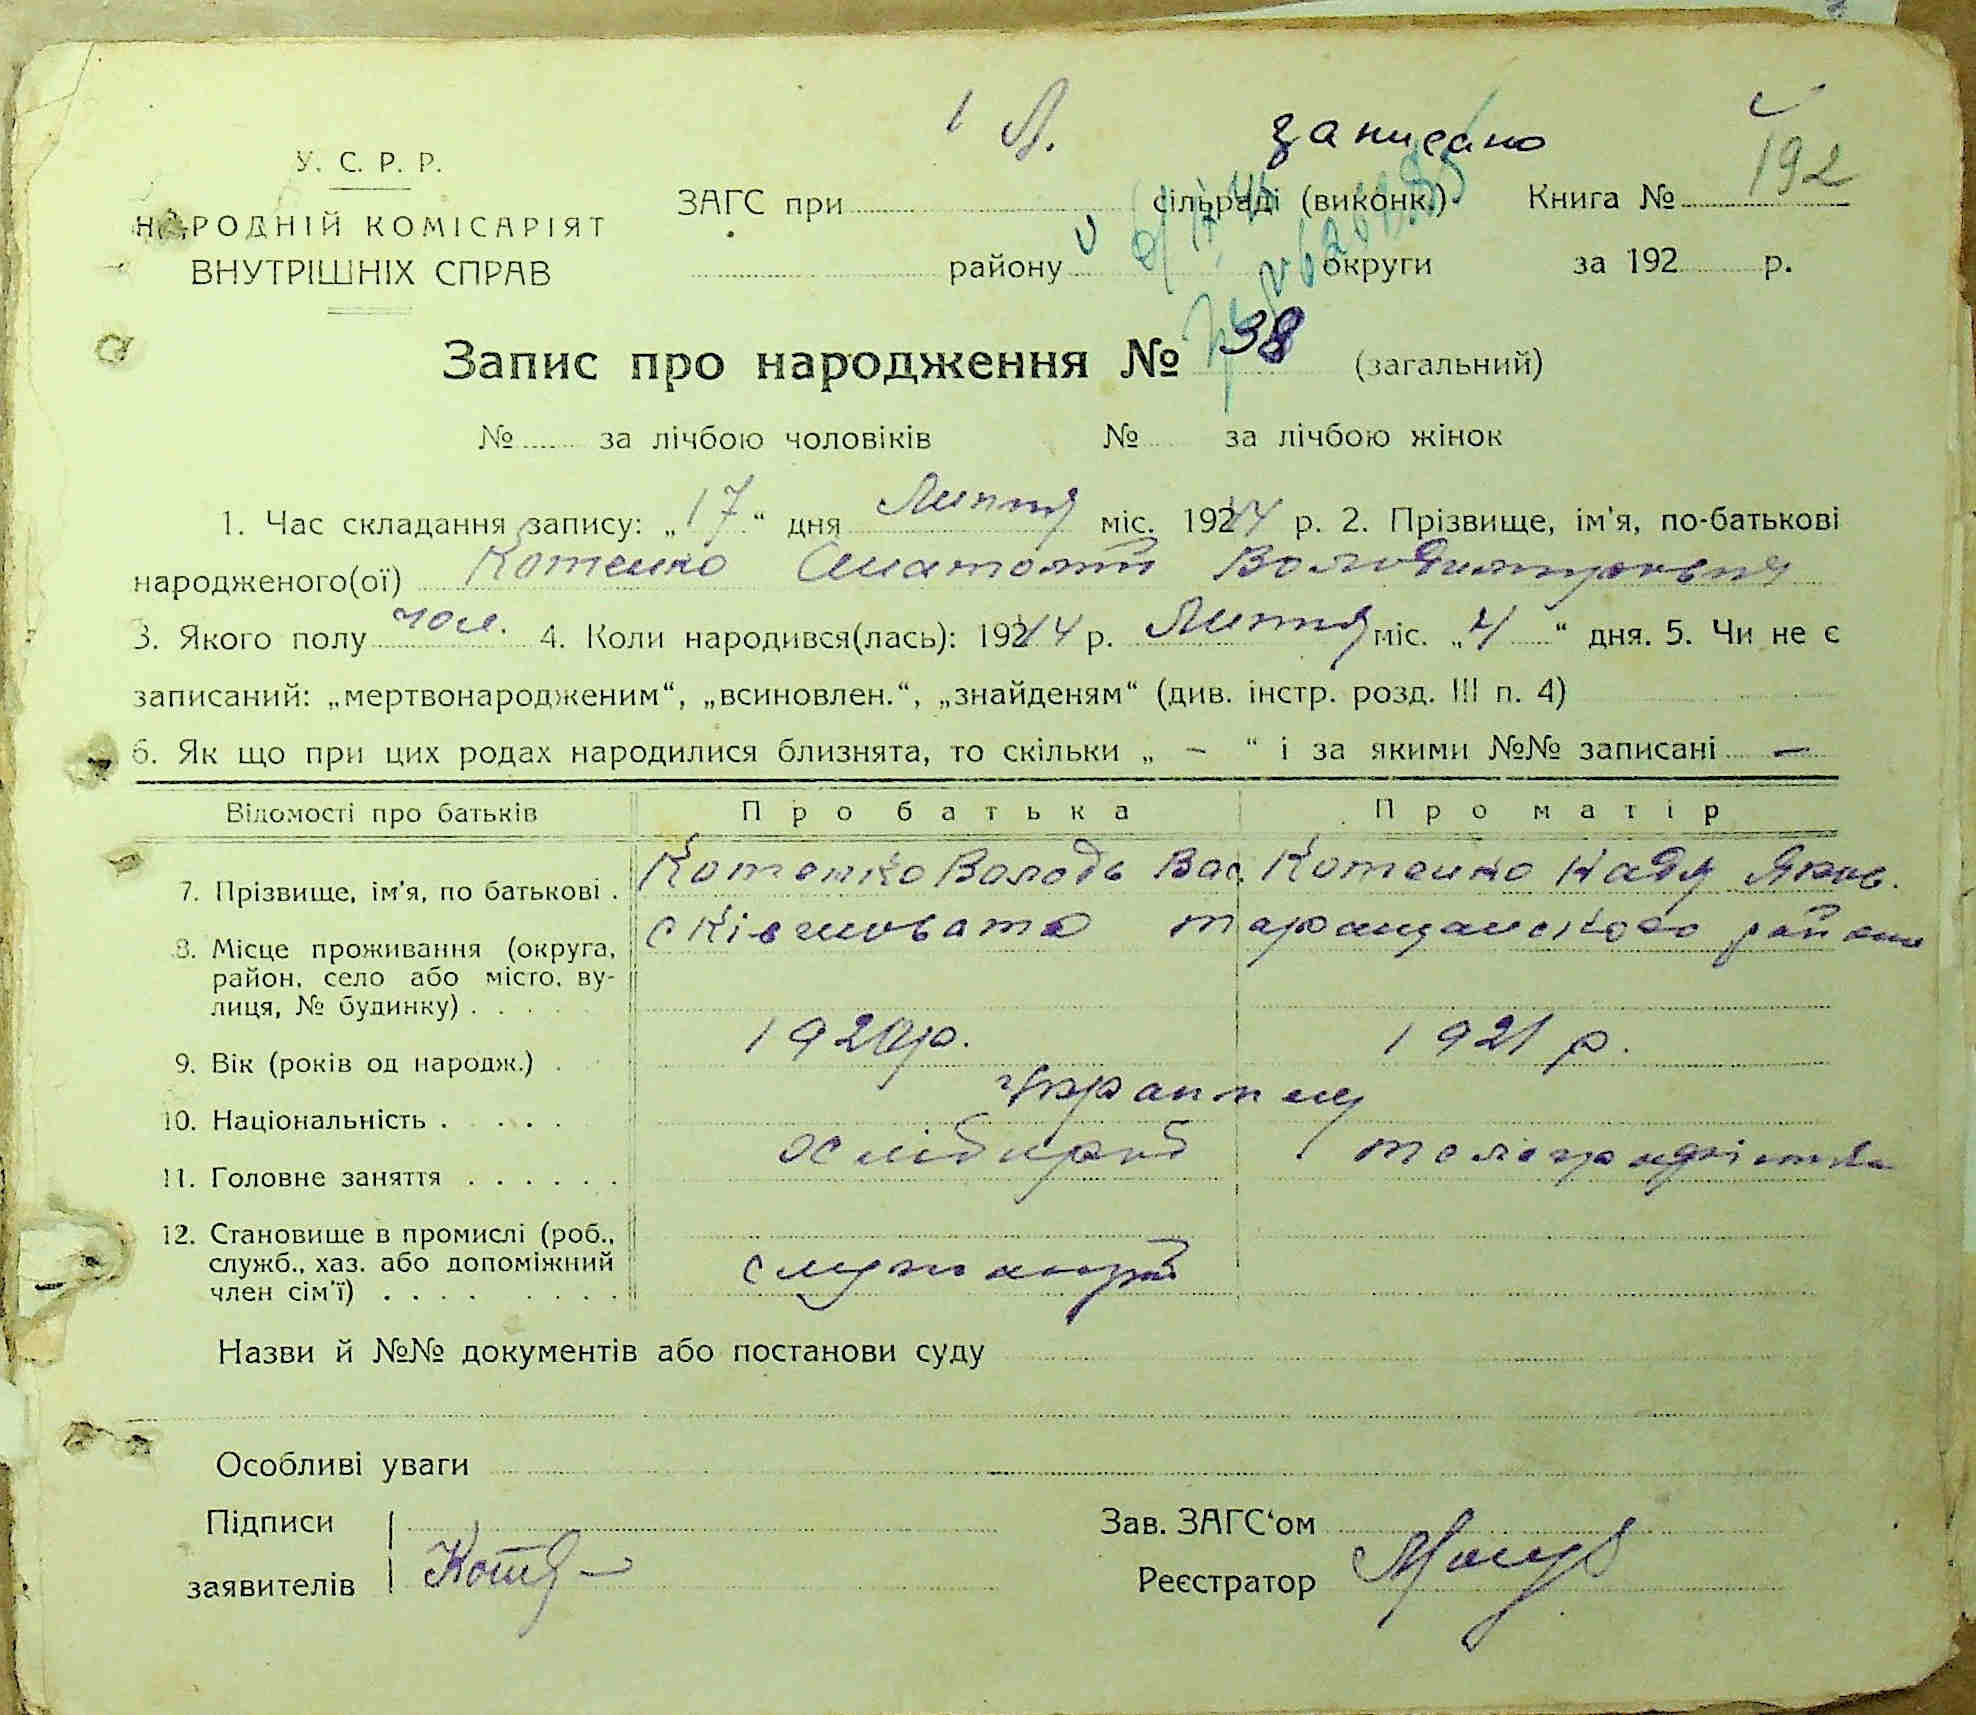 1 Л. записано
У. С. Р. Р.
НАРОДНІЙ КОМІСАРІЯТ
ВНУТРІШНІХ СПРАВ
ЗАГС при сільраді (виконк.) Книга № 192
району округи за 192 р.
Запис про народження № 38 (загальний)
№ за лічбою чоловіків № за лічбою жінок
1. Час складання запису: „17“ дня Липня міс. 1944 р. 2. Прізвище, ім'я, по-батькові
народженого(ої) Котенко Анатолій Володимирович
3. Якого полу чол. 4. Коли народився(лась): 1944 р. Липня міс. „4“ дня. 5. Чи не є
записаний: „мертвонародженим“, „всиновлен.“, „знайденям“ (див. інстр. розд. III п. 4)
6. Як що при цих родах народилися близнята, то скільки „ – “ і за якими №№ записані —
Відомості про батьків Про батька Про матір
7. Прізвище, ім'я, по батькові . Котенко Володь Вас. Котенко Надя Яков.
8. Місце проживання (округа, с Ківшовата таращанского района
район, село або місто, ву-
лиця, № будинку) . . . .
9. Вік (років од народж.) . 1920 р. 1921 р.
10. Національність . . . . .
11. Головне заняття . . . . . . хлібороб телеграфістка
12. Становище в промислі (роб.,
служб., хаз. або допоміжний служащий
член сім'ї) . . . . . . . .
Назви й №№ документів або постанови суду
Особливі уваги
Підписи Зав. ЗАГС'ом
заявителів Реєстратор